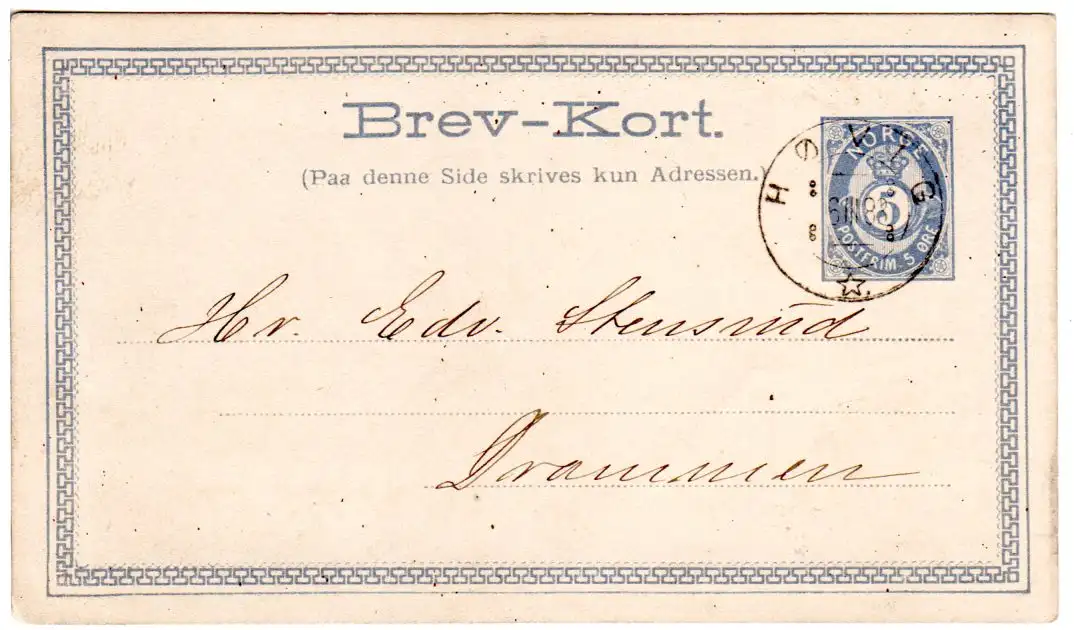 Brev-Kort.
(Paa denne Side skrives kun Adressen.)
NORGE
5
POSTFRIM. 5 ØRE
HØVIG
Hr. Edv. Stensrud
Drammen